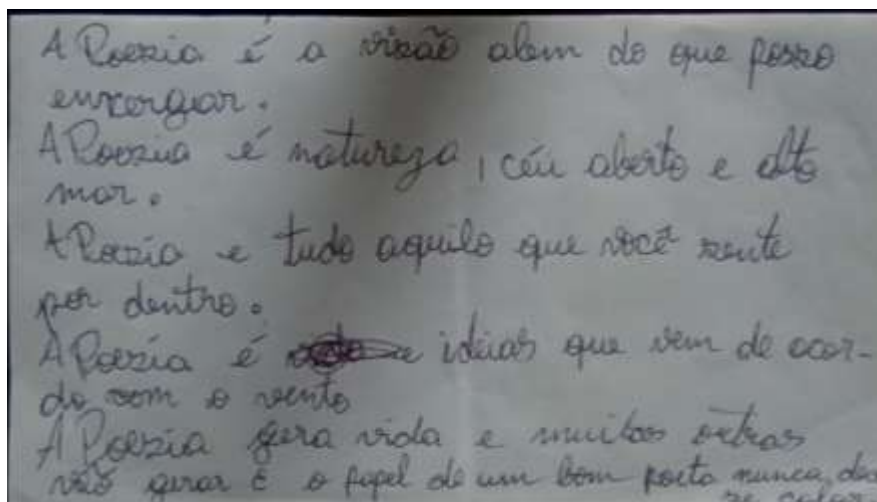 A Poezia é a vizão alem do que posso
enxergar.
A Poezia é natureza, céu aberto e alto
mar.
A Poezia e tudo aquilo que você sente
por dentro.
A Poezia é ideias que vem de acor-
do com o vento
A Poezia gera vida e muitas outras
vão gerar é o papel de um bom poeta nunca